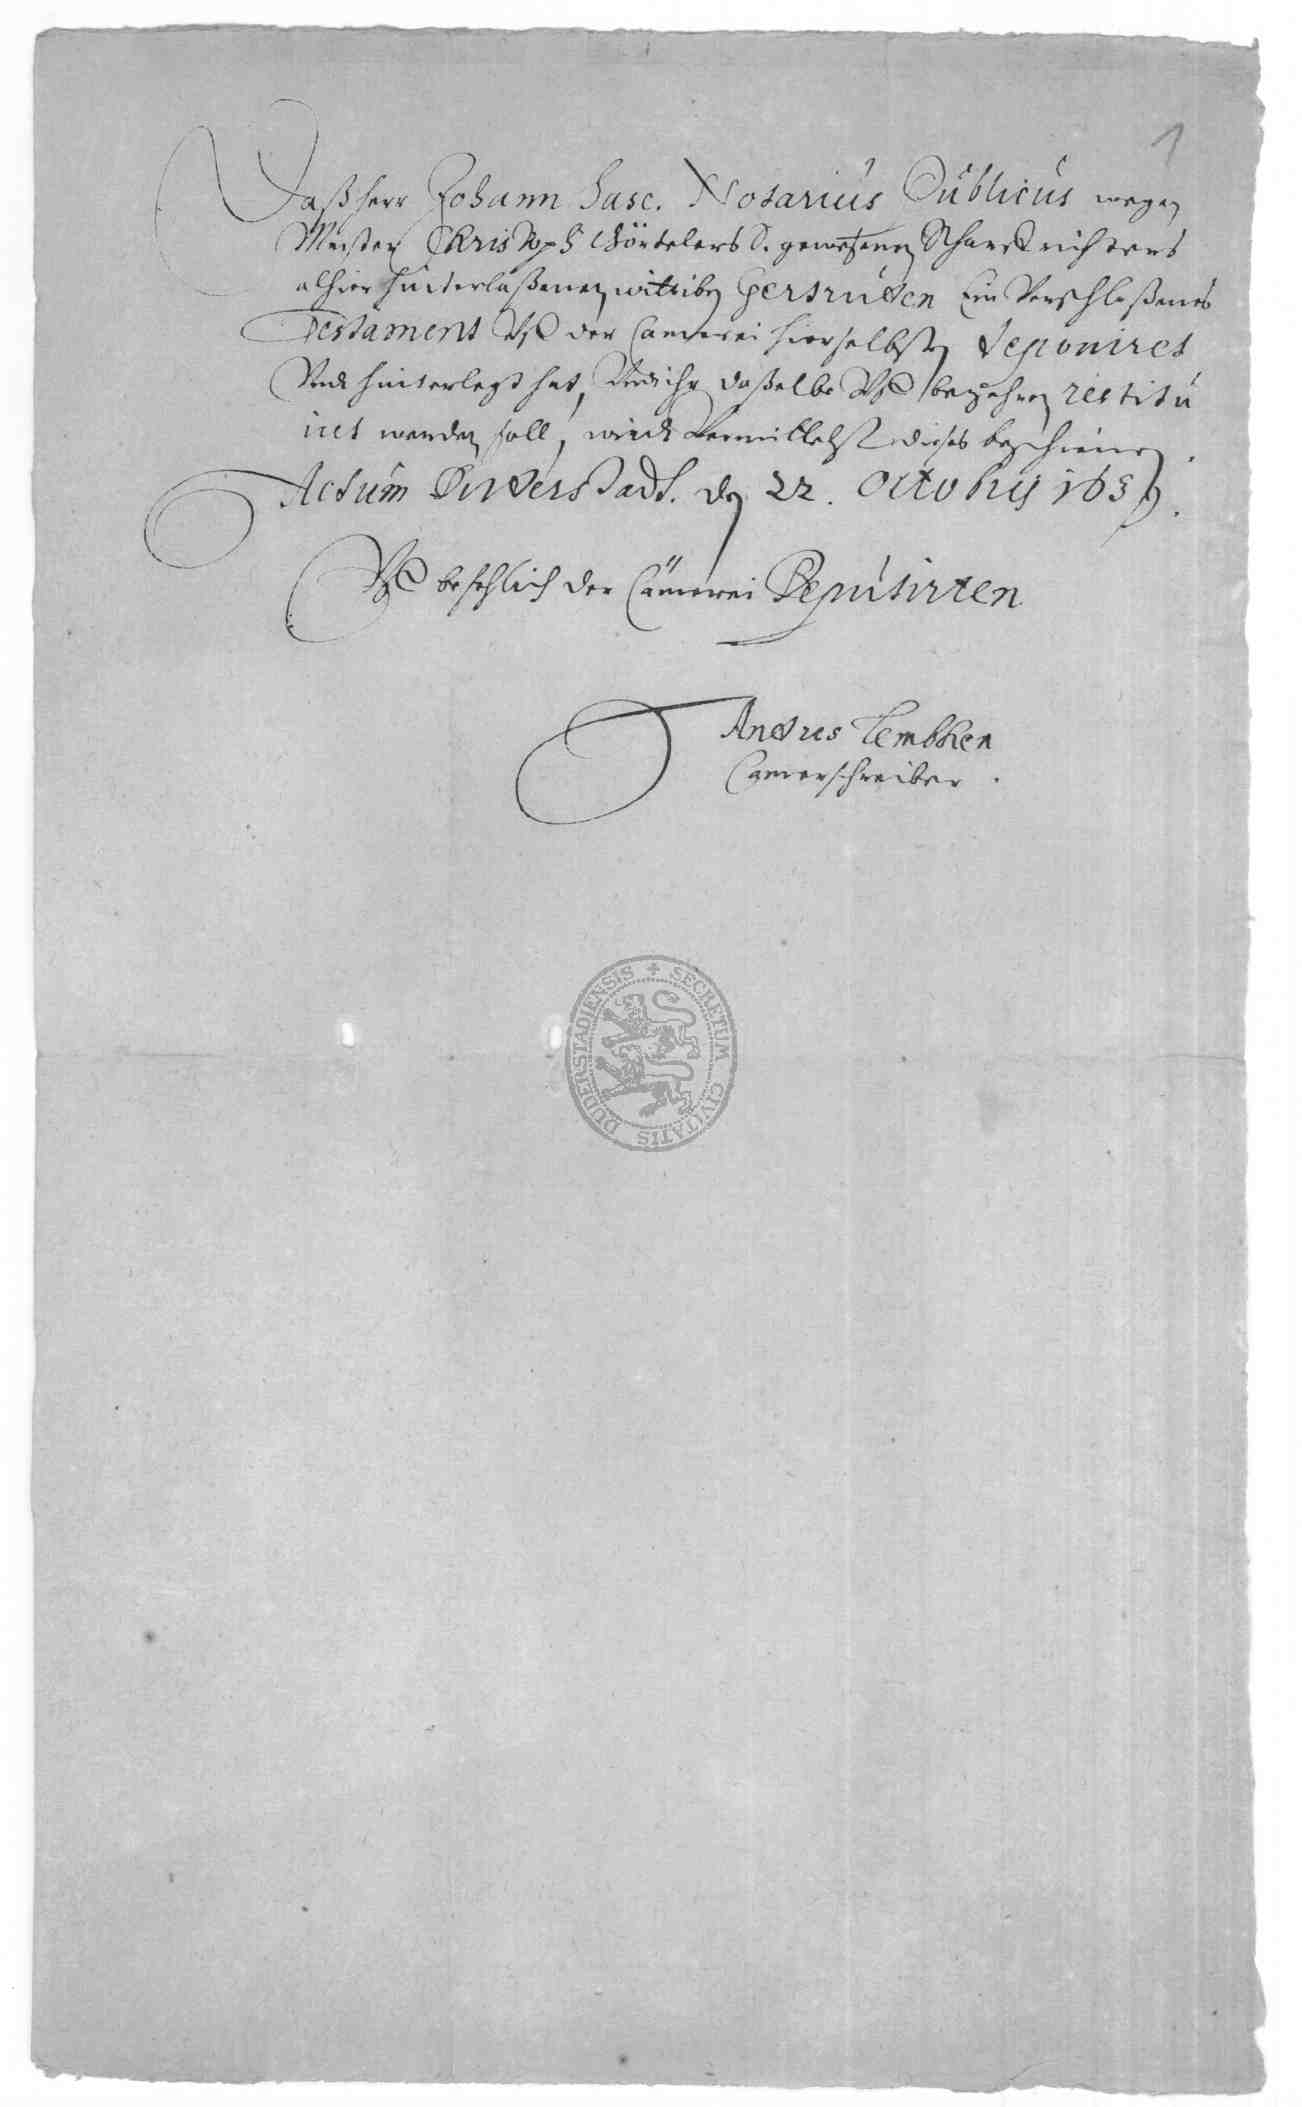 1
Daß herr Johann hase. Notarius Publicus wegen
Meister Christoph Görtelers S. gewesenen Scharffrichters
alhier hinterlaßenen witiben Gertruden Ein Verschloßenes
Testament Uff der Cammerei hierselbsten deponiret
Undt hinterlegt hat, Undt ihr daßelbe Uff begehren restitu
iret werden soll, wirdt Vermittelst dieses bescheinet.
Actum Duderstadt. den 22. Octobris 165
Uff befehlich der Cämerei Deputirten
Andres Lembken
Camerschreiber.
SECRETUM CIVITATIS DUDERSTADIENSIS